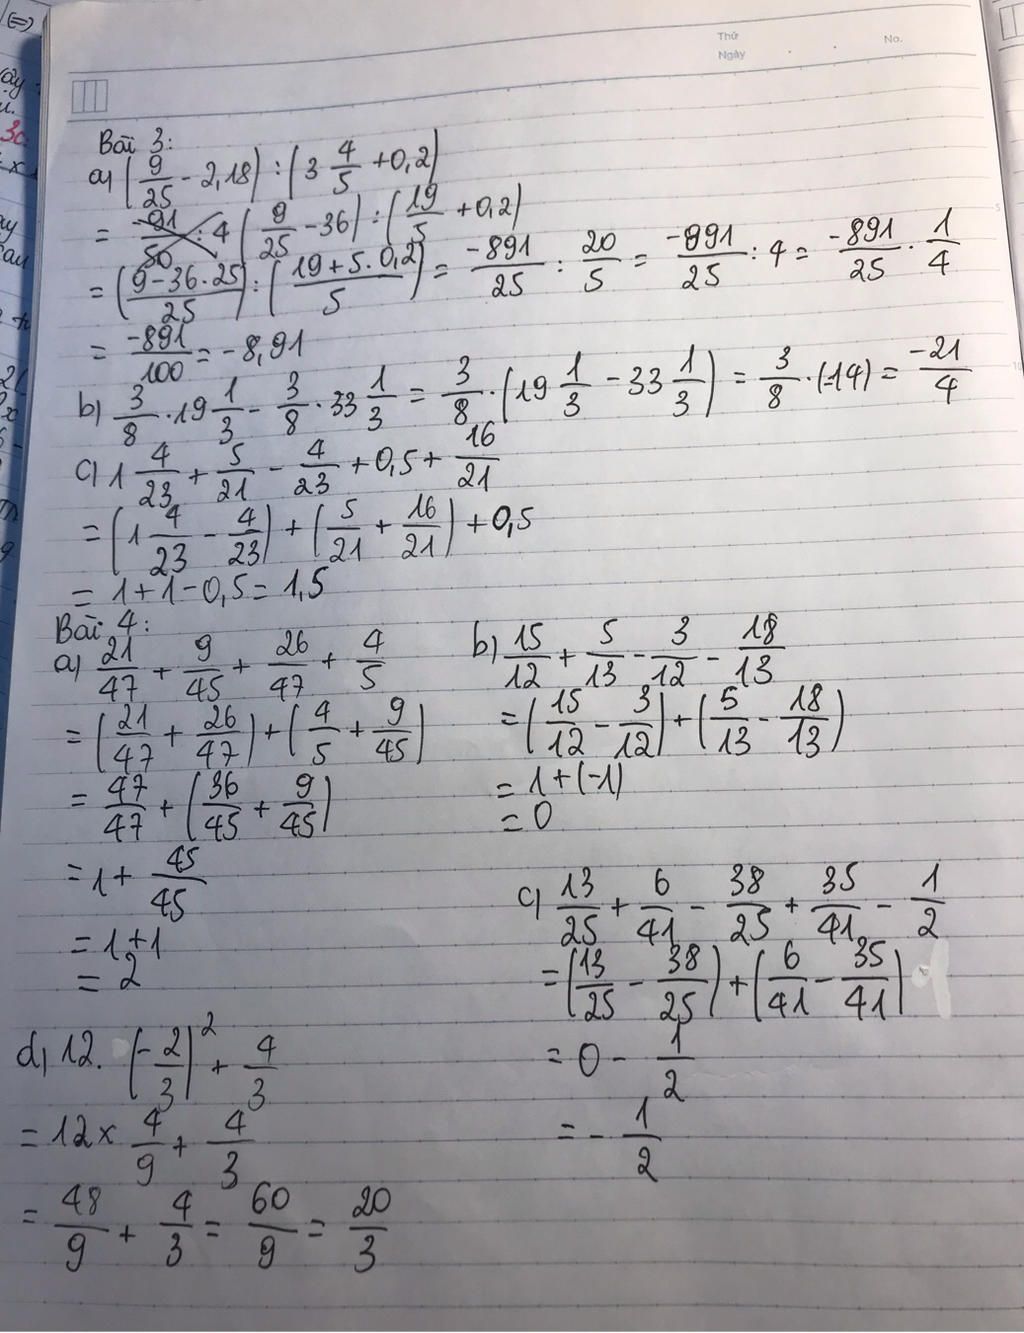 Thứ
Ngày
No.
Bài 3:
a) (9/25 - 2,18) : (3 4/5 + 0,2)
= (9/25 - 36) : (19/5 + 0,2)
= (9-36.25/25) : (19+5.0,2/5) = -891/25 : 20/5 = -991/25 : 4 = -891/25 . 1/4
= -891/100 = -8,91
b) 3/8 . 19 1/3 - 3/8 . 33 1/3 = 3/8 . (19 1/3 - 33 1/3) = 3/8 . (-14) = -21/4
c) 1 4/23 + 5/21 - 4/23 + 0,5 + 16/21
= (1 4/23 - 4/23) + (5/21 + 16/21) + 0,5
= 1 + 1 - 0,5 = 1,5
Bài 4:
a) 21/47 + 9/45 + 26/47 + 4/5
= (21/47 + 26/47) + (4/5 + 9/45)
= 47/47 + (36/45 + 9/45)
= 1 + 45/45
= 1 + 1
= 2
b) 15/12 + 5/13 - 3/12 - 18/13
= (15/12 - 3/12) + (5/13 - 18/13)
= 1 + (-1)
= 0
c) 13/25 + 6/41 - 38/25 + 35/41 - 1/2
= (13/25 - 38/25) + (6/41 - 35/41)
= 0 - 1/2
= - 1/2
d) 12. (-2/3)² + 4/3
= 12 x 4/9 + 4/3
= 48/9 + 4/3 = 60/9 = 20/3